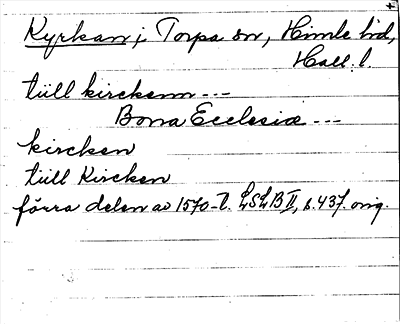 Kyrkan i; Torpa sn, Himle hd,
Hall. l.
tüll kirckenn ---
Bona Ecclesiæ ---
kircken
tüll Kircken
förra delen av 1570-t. LSLB II, s. 437. orig.